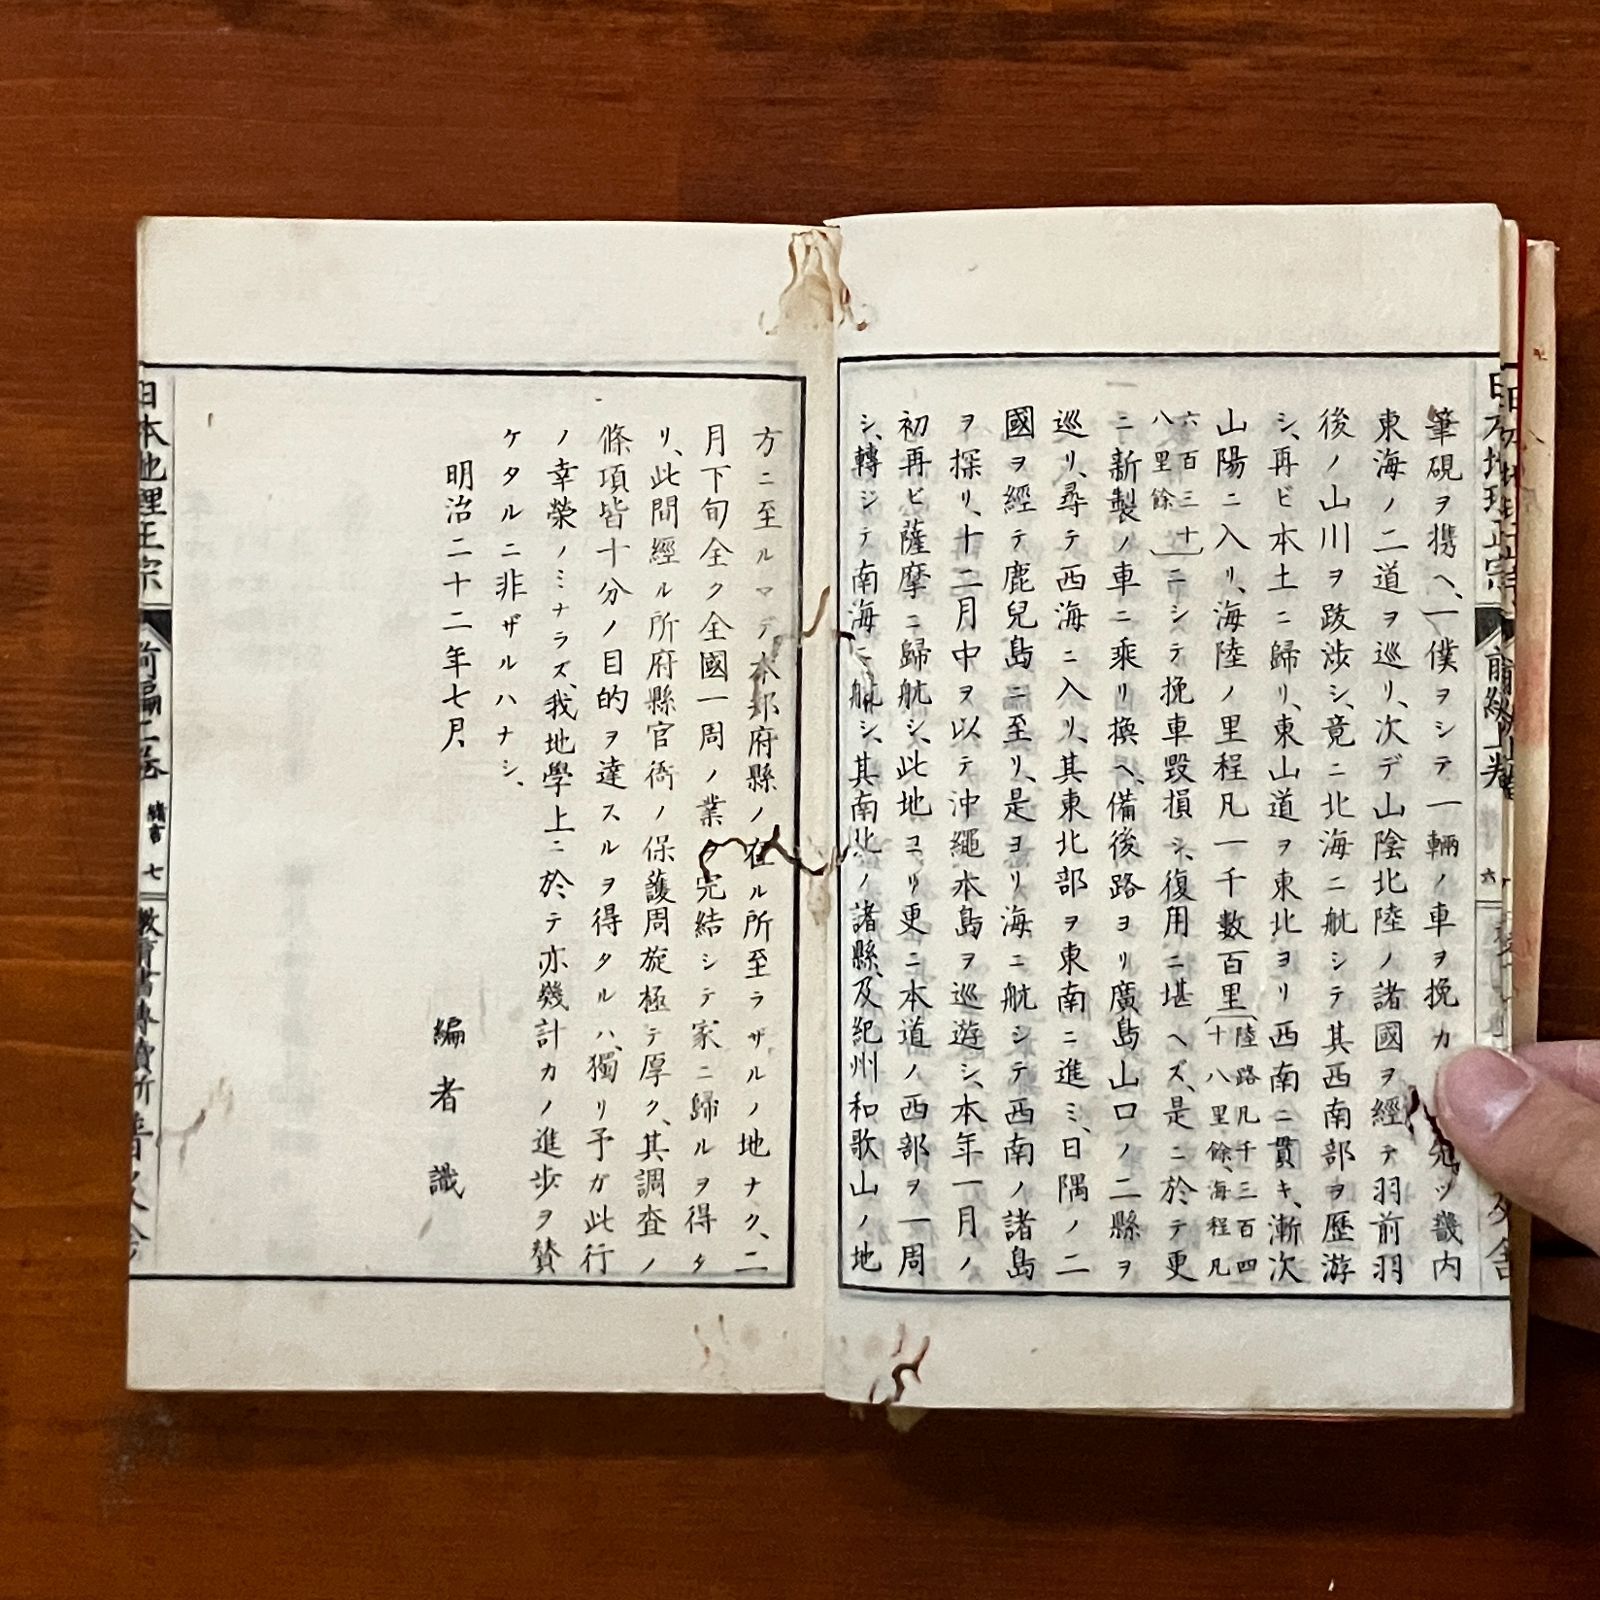 筆硯ヲ携ヘ、一僕ヲシテ一輛ノ車ヲ挽カ 先ヅ畿内
東海ノ二道ヲ巡リ、次デ山陰北陸ノ諸國ヲ經テ羽前羽
後ノ山川ヲ跋渉シ、竟ニ北海ニ航シテ其西南部ヲ歷游
シ、再ビ本土ニ歸リ、東山道ヲ東北ヨリ西南ニ貫キ、漸次
山陽ニ入リ、海陸ノ里程凡一千數百里（陸路凡千三百四十八里餘、海程凡
六百三十八里餘）ニシテ挽車毀損シ、復用ニ堪ヘズ、是ニ於テ更
ニ新製ノ車ニ乘リ換ヘ、備後路ヨリ廣島山口ノ二縣ヲ
巡リ、尋テ西海ニ入リ、其東北部ヲ東南ニ進ミ、日隅ノ二
國ヲ經テ鹿兒島ニ至リ、是ヨリ海ニ航シテ西南ノ諸島
ヲ探リ、十二月中ヲ以テ沖繩本島ヲ巡遊シ、本年一月ノ
初再ビ薩摩ニ歸航シ、此地ヨリ更ニ本道ノ西部ヲ一周
シ、轉ジテ南海ニ航シ、其南北ノ諸縣、及紀州和歌山ノ地
方ニ至ルマデ本邦府縣ノ在ル所至ラザルノ地ナク、二
月下旬全ク全國一周ノ業ヲ完結シテ家ニ歸ルヲ得タ
リ、此間經ル所府縣官衙ノ保護周旋極テ厚ク、其調査ノ
條項皆十分ノ目的ヲ達スルヲ得タルハ、獨リ予ガ此行
ノ幸榮ノミナラズ、我地學上ニ於テ亦幾計カノ進歩ヲ賛
ケタルニ非ザルハナシ、
明治二十二年七月
編者識
日本地理正宗
前編二卷
緒言
七
六